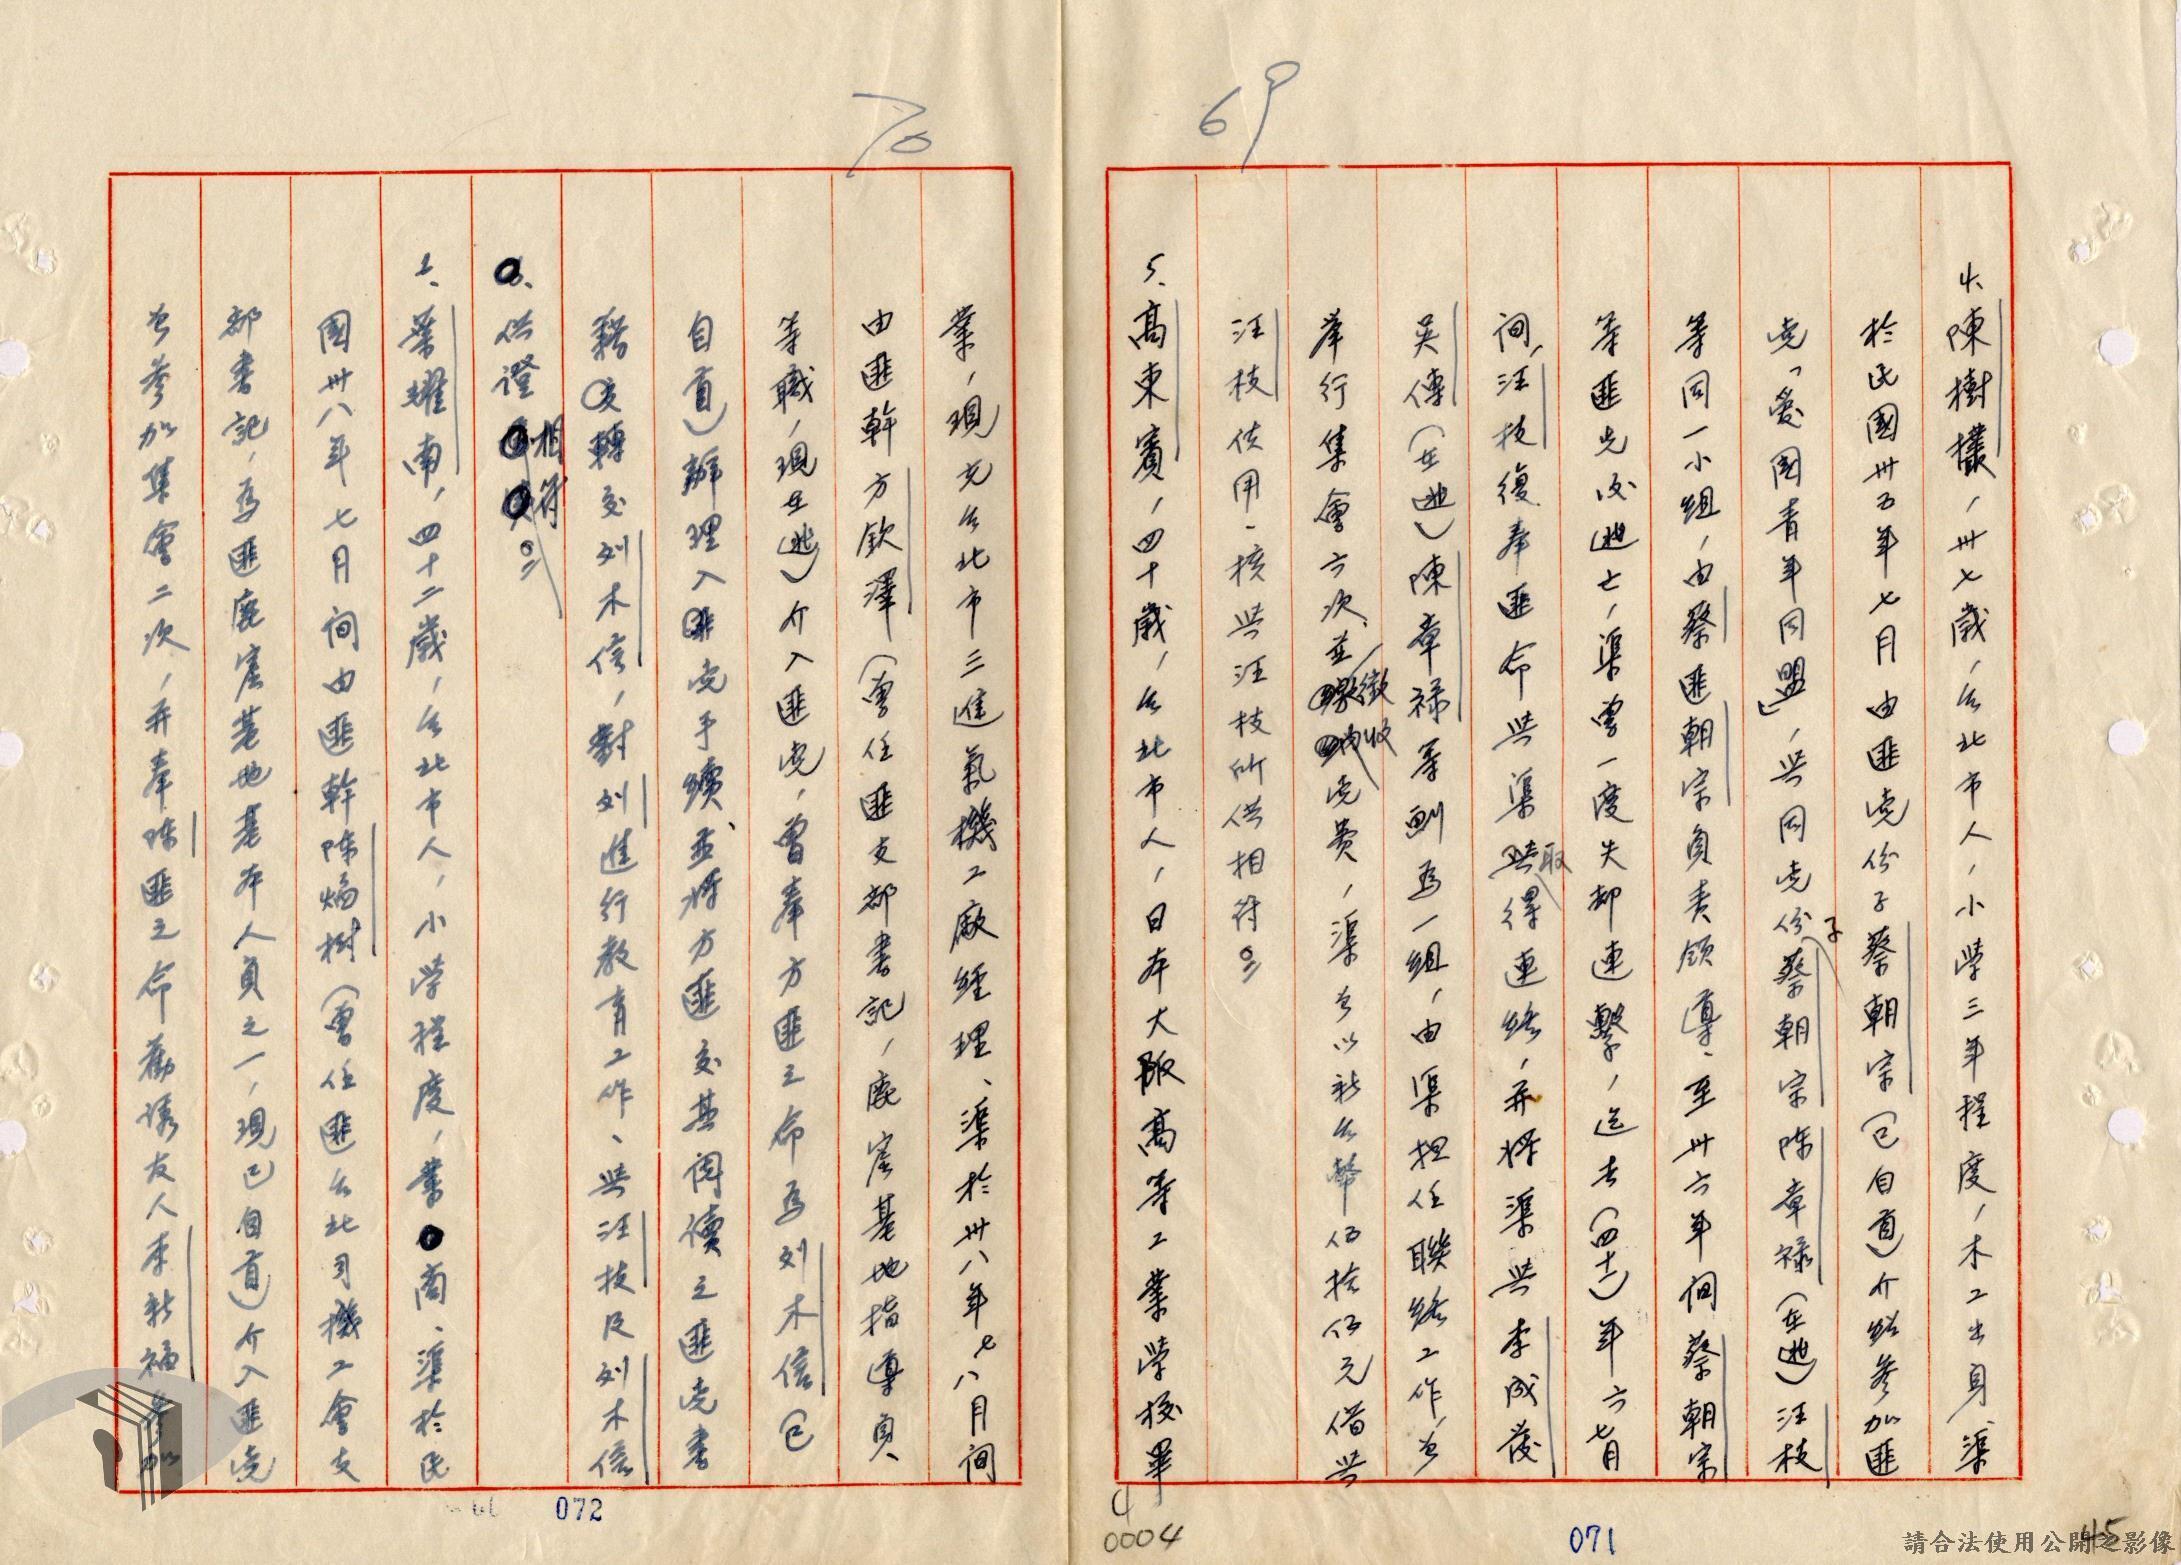 69
4、陳樹欉，卅七歲，台北市人，小學三年程度，木工出身、渠
於民國卅五年七月由匪党份子蔡朝宗（已自首）介紹參加匪
党「愛國青年同盟」，与同党份子蔡朝宗陳章祿（在逃）汪枝
等同一小組，由蔡匪朝宗負責領導、至卅六年間蔡朝宗
等匪先後逃亡，渠曾一度失却連繫，迄去（四十一）年六七月
間，汪枝復奉匪命与渠取得連絡，并将渠与李成發
吳傳（在逃）陳章祿等劃為一組，由渠担任聯絡工作，曾
舉行集會六次、並徵收党費，渠曾以新台幣伍拾伍元借与
汪枝使用、核与汪枝所供相符。
5、高東賓，四十歲，台北市人，日本大阪高等工業學校畢
071
4
0004
45
70
業，現充台北市三進氣機工廠經理、渠於卅八年七八月間
由匪幹方欽澤（曾任匪支部書記，鹿窟基地指導員
等職，現在逃）介入匪党，曾奉方匪之命為刘木信（已
自首）辦理入匪党手續、並將方匪交其閱讀之匪党書
籍轉交刘木信，對刘進行教育工作、与汪枝及刘木信
供證相符。
葉耀南，四十二歲，台北市人，小學程度，業商、渠於民
國卅八年七月間由匪幹陳焬樹（曾任匪台北司機工會支
部書記，為匪鹿窟基地基本人員之一，現已自首）介入匪党
曾參加集會二次，并奉陳匪之命勸誘友人李新福參加
072
請合法使用公開之影像